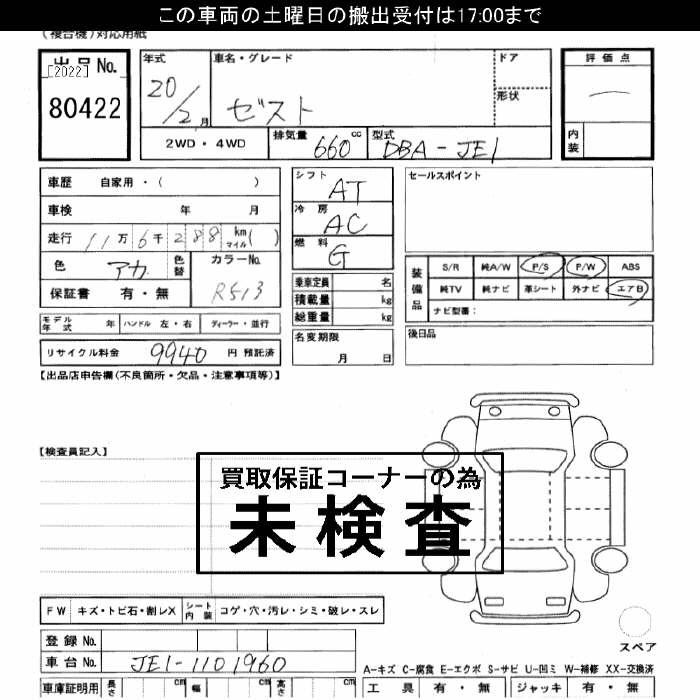 この車両の土曜日の搬出受付は17:00まで
(複合機)対応用紙
出品No.
[2022]
80422
年式 20/2月
車名・グレード ゼスト
ドア
形状
2WD・4WD
排気量 660 cc
型式 DBA-JE1
評価点
内装
車歴 自家用・( )
車検 年 月
走行 11万6千288 km マイル( )
色 アカ 色替
カラーNo. R513
保証書 有・無
シフト AT
冷房 AC
燃料 G
乗車定員 名
積載量 kg
総重量 kg
セールスポイント
装備品
S/R 純A/W P/S P/W ABS
純TV 純ナビ 革シート 外ナビ エアB
ナビ型番:
モデル年式 年 ハンドル 左・右 ディーラー・並行
名変期限 月 日
後日品
リサイクル料金 9940 円 預託済
【出品店申告欄(不良箇所・欠品・注意事項等)】
【検査員記入】
買取保証コーナーの為
未検査
FW キズ・トビ石・割レX シート内装 コゲ・穴・汚レ・シミ・破レ・スレ
登録No.
車台No. JE1-1101960
スペア
A-キズ C-腐食 E-エクボ S-サビ U-凹ミ W-補修 XX-交換済
車庫証明用 長さ cm 幅 cm 高さ cm
工具 有・無 ジャッキ 有・無